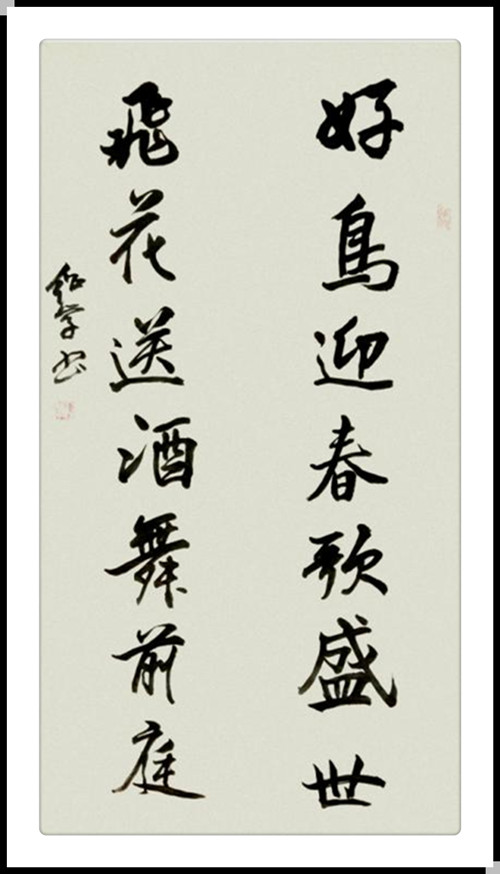 好鳥迎春歌盛世
飛花送酒舞前庭